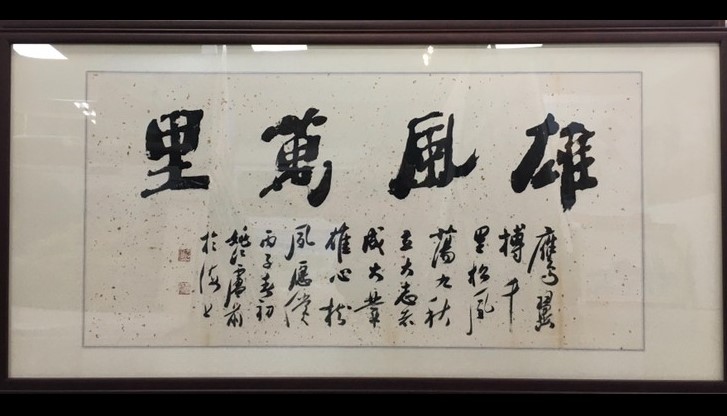 雄風萬里
鷹翼
搏千
里松風
蕩九秋
立大志者
成大業
雄心
夙愿償
丙子春初
盧前
於海上